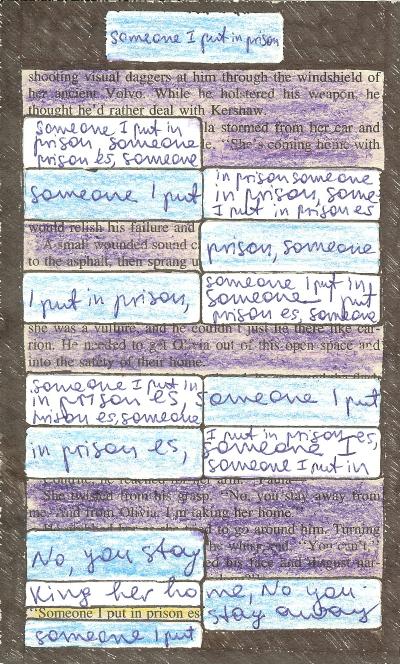 someone I put in prison
shooting visual daggers at him through the windshield of
her ancient Volvo. While he holstered his weapon, he
thought he'd rather deal with Kershaw.
someone I put in
prison, someone
prison es, someone
la stormed from her car and
le. "She's coming home with
someone I put
in prison someone
in prison, some
I put in prison es
would relish his failure and
A small wounded sound c
to the asphalt, then sprang u
prison, someone
I put in prison,
someone I put in
someone I put
prison es, someone
she was a vulture, and he couldn't just lie there like car-
rion. He needed to get Olivia out of this open space and
into the safety of their home.
someone I put in
in prison es, s
prison es, someone
someone I put
in prison es,
I put in prison es,
someone I
someone I put in
She twisted from his grasp. "No, you stay away from
me. And from Olivia. I'm taking her home
to go around him. Turning
"You can't,
ed his face and disgust nar-
No, you stay
king her ho
me, No you
"Someone I put in prison es
stay away
someone I put